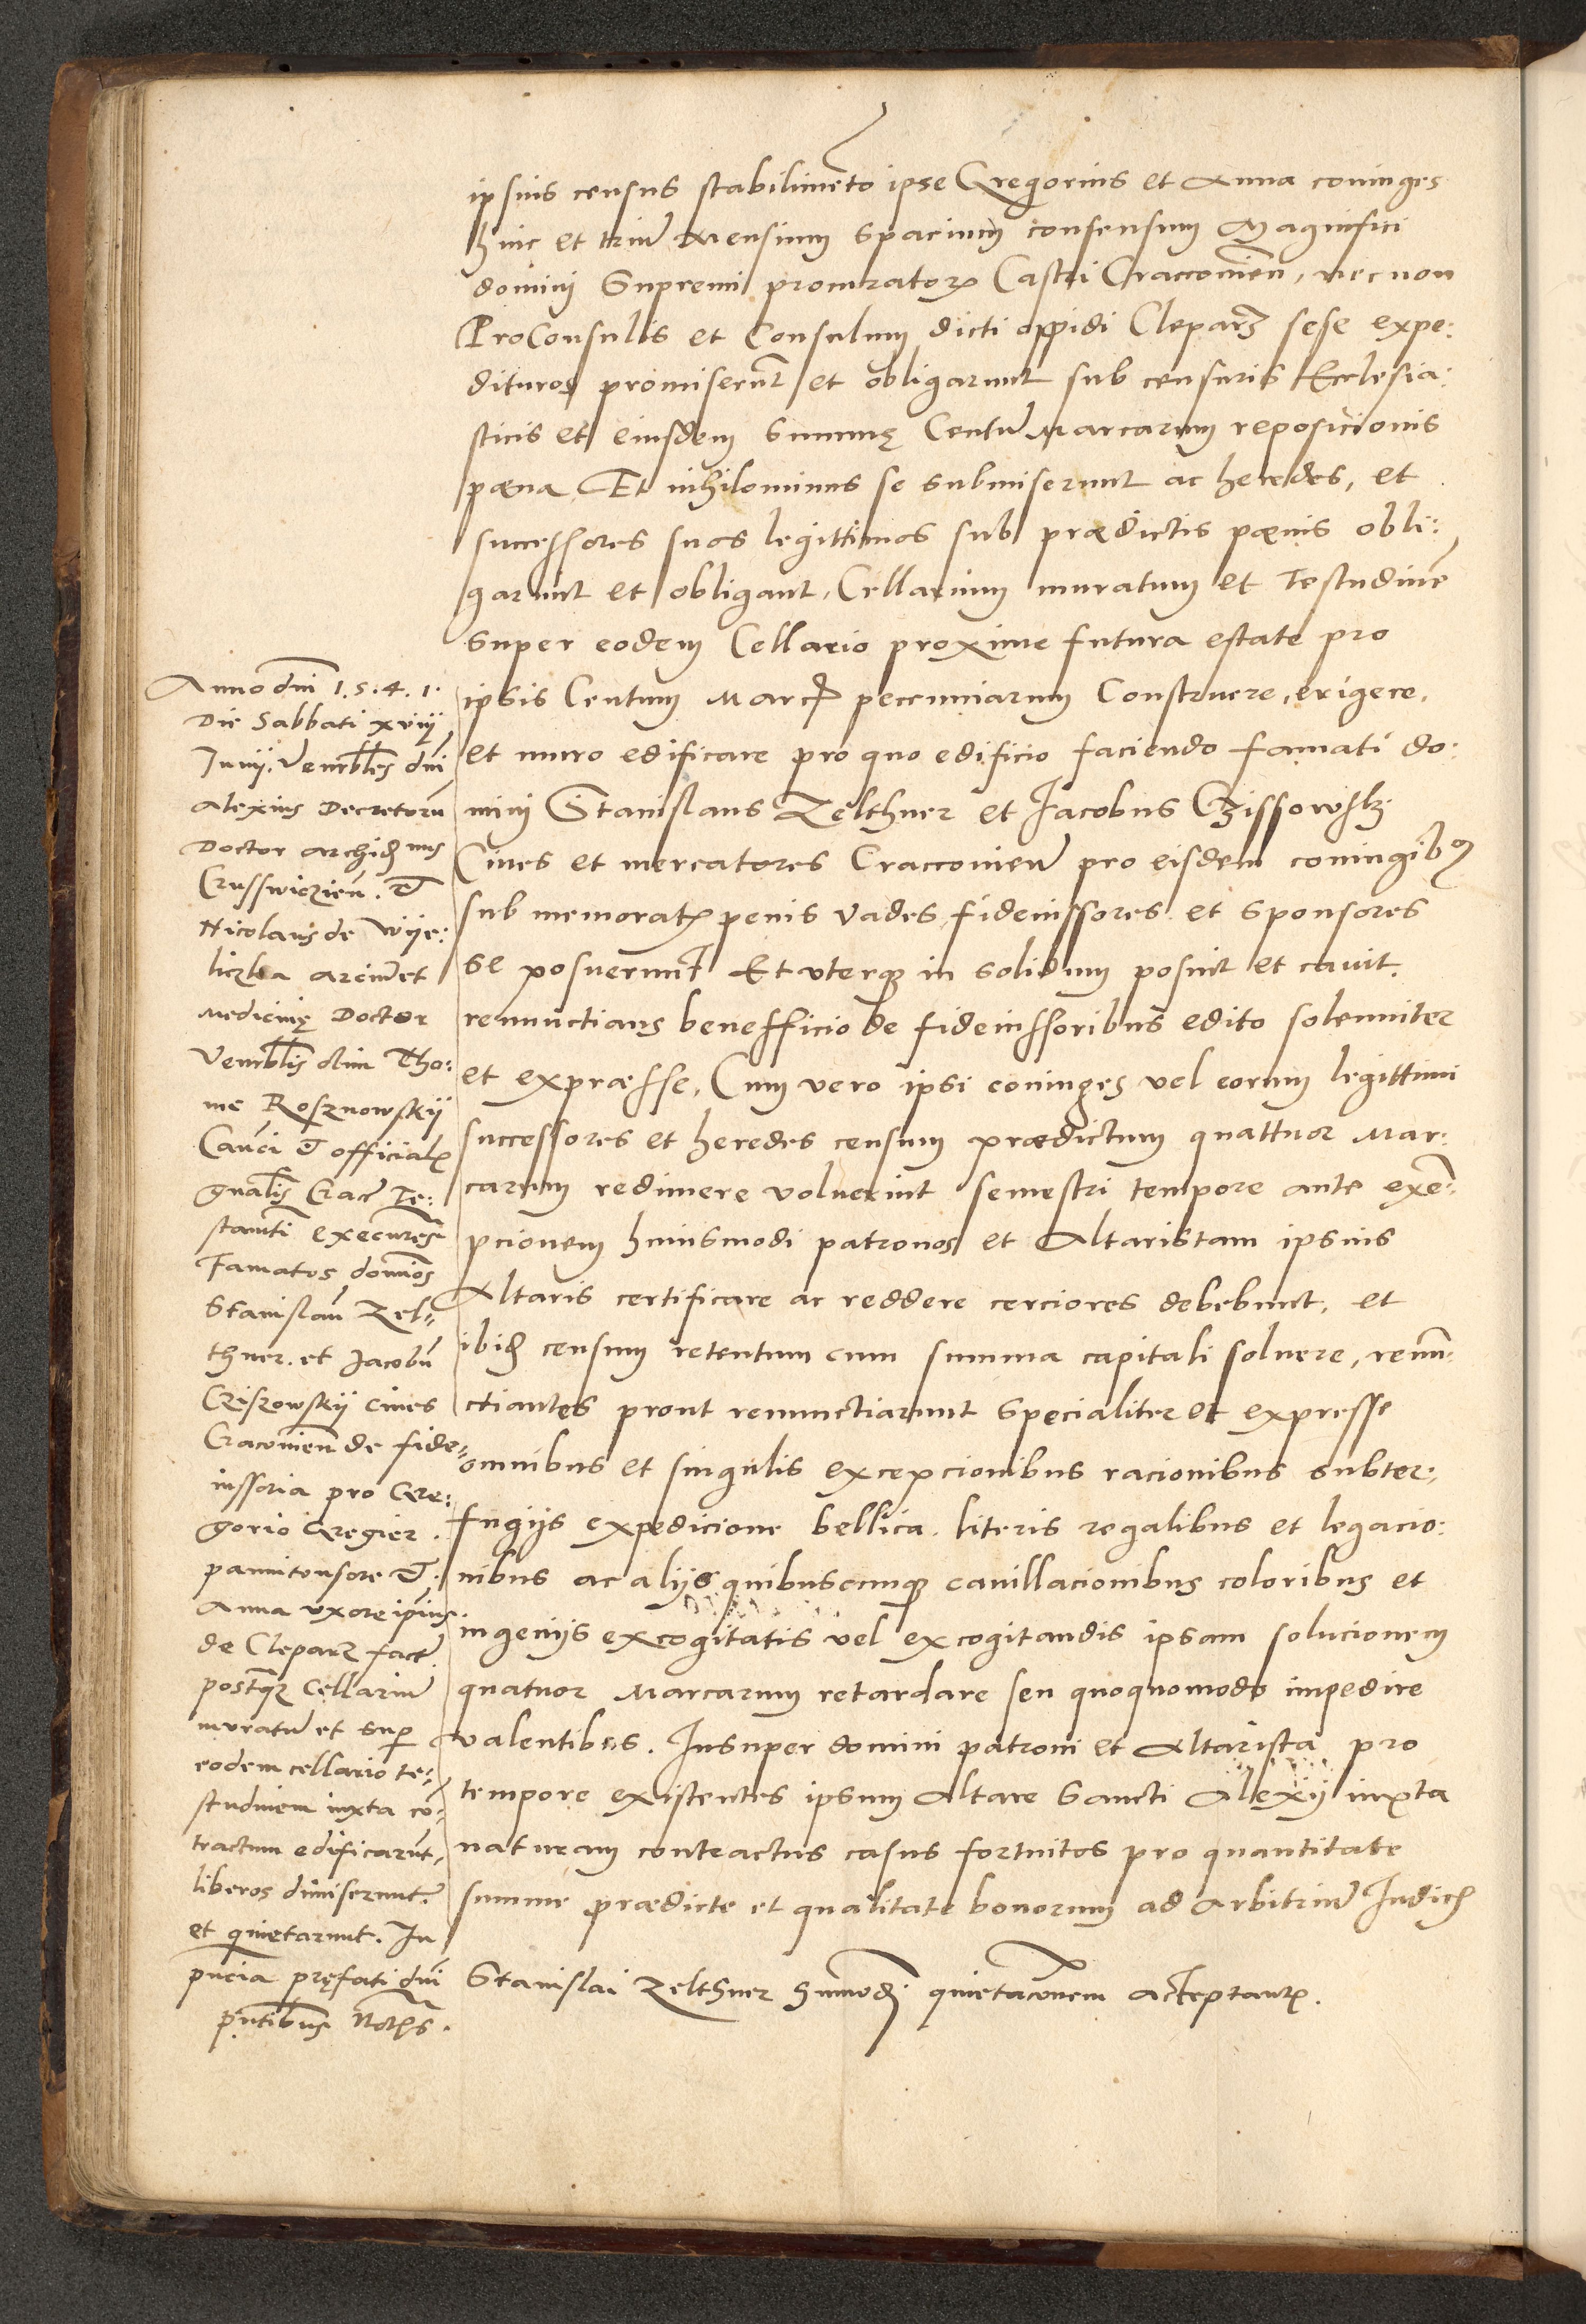 ipsius census stabilimēto ipse Gregorius et Anna coniuges
hinc et triū Mensium spacium consensum Magnifici
domini Supremi procurator Castri Cracovien̄, necnon
ProConsulis et Consulum dicti oppidi Cleparz sese expe:
dituros promiserūt et obligarunt sub censuris Ecclesia:
sticis et eiusdem summę Centū Marcarum reposicionis
pœna, Et nihilominus se submiserunt ac heredes, et
successores suos legittimos sub prædictis pœnis obli:
garunt et obligant, Cellarium muratum et Testudinē
super eodem Cellario proxime futura estate pro
ipsis Centum Marc pecunniarum Construere, erigere,
et muro edificare pro quo edificio faciendo famati do:
mini Stanislaus Zelthner et Jacobus Czissowsky
Cives et mercatores Cracovien̄ pro eisdem coniugibꝰ
sub memorat penis vades, fideiussores et sponsores
se posuerunt Et uterqꝫ in solidum posuit et cavit.
renunctians benefficio de fideiussoribus edito solenniter
et expræsse, Cum vero ipsi coniuges vel eorum legittimi
successores et heredes censum prædictum quattuor Mar:
carum redimere voluerint semestri tempore ante exē:
pcionem huiusmodi patronos et Altaristam ipsius
Altaris certificare ac reddere cerciores debebunt, et
ibid censum retentum cum summa capitali solvere, renū:
ctiantes prout renunctiarunt specialiter et expresse
omnibus et singulis excepcionibus racionibus subter:
fugijs expedicione bellica, literis regalibus et legacio:
nibus ac alijs quibuscunqꝫ cavillacionibus coloribus et
ingenijs excogitatis vel excogitandis ipsam solucionem
quatuor Marcarum retardare seu quoquomodo impedire
valentibus. Insuper domini patroni et Altarista pro
tempore existentes ipsum Altare Sancti Alexij iuxta
naturam contractus casus fortuitos pro quantitate
summe prædicte et qualitate bonorum ad Arbitriū Judic
Anno dn̄i 1.5.4.1.
Die Sabbati xviij
Junij. Venrbl̄es dn̄i
Alexius Decretorū
Doctor archid nus
Crusswiczien̄. et
Nicolaus de Wije:
liczka arciū et
Medicinę Doctor
Venrbl̄is olim Tho:
me Rosznowskij
Can̄ci et official
gn̄alis Crac̄ Te:
stan̄ti execut̄es
Famatos domīos
Stanislaū Zel:
thner. et Jacobū
Cziszowskij cives
Cracovien̄ de fide:
iussoria pro Gre:
gorio Gregier
pannitonsore et
Anna uxore ipius
de Cleparz fact̄
postqꝫ Cellariū
muratū et sup
eodem cellario te:
studinem iuxta cō:
tractum edificarūt,
liberos dimiserunt
et quietarunt. In
pn̄cia pręfati dn̄i
Stanislai Zelthner hm̄odi quietacōnem acceptant.
pn̄tibus Not̄s.